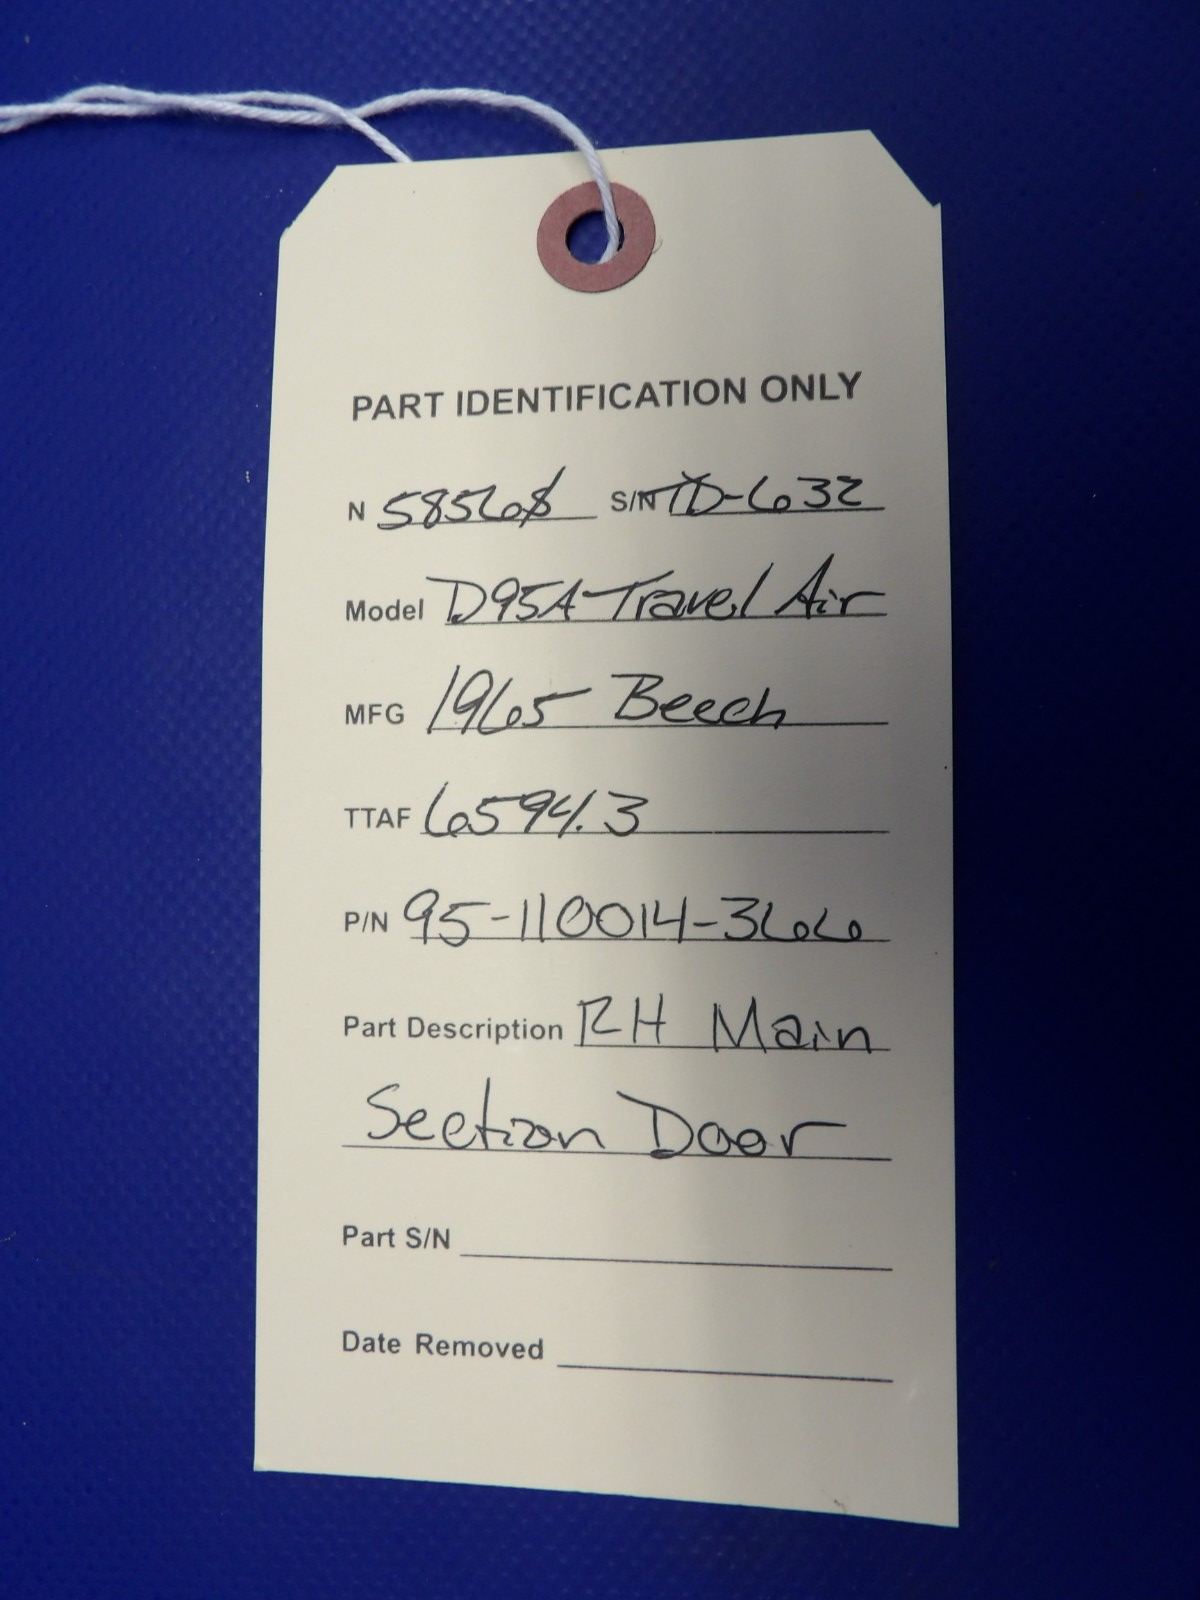 PART IDENTIFICATION ONLY
N 5856S S/N TD-632
Model D95A Travel Air
MFG 1965 Beech
TTAF 6594.3
P/N 95-110014-366
Part Description RH Main
Section Door
Part S/N
Date Removed